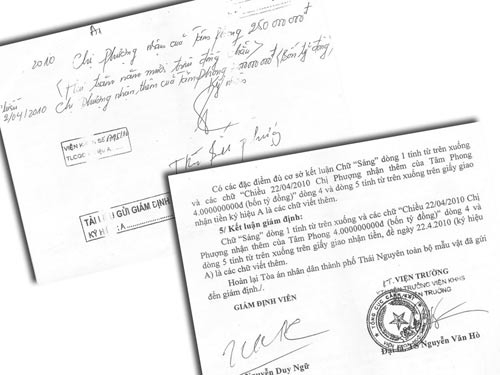 2010 Chị Phượng nhận của Tâm Phong 250 000 000đ
(Hai trăm năm mươi triệu đồng chẵn)
Chiều
2/04/2010 Chị Phượng nhận thêm của Tâm Phong 4.000 000 000đ (Bốn tỷ đồng)
Ký nhận
VIỆN KHKS
TLCQ KÝ HIỆU A
TÀI LIỆU GỬI GIÁM ĐỊNH
KÝ HIỆU: A
Có các đặc điểm đủ cơ sở kết luận Chữ "Sáng" dòng 1 tính từ trên xuống
và các chữ "Chiều 22/04/2010 Chị Phượng nhận thêm của Tâm Phong
4.000000000đ (bốn tỷ đồng)" dòng 4 và dòng 5 tính từ trên xuống trên giấy giao
nhận tiền ký hiệu A là các chữ viết thêm.
5/ Kết luận giám định:
Chữ "Sáng" dòng 1 tính từ trên xuống và các chữ "Chiều 22/04/2010 Chị
Phượng nhận thêm của Tâm Phong 4.000000000đ (bốn tỷ đồng)" dòng 4 và
dòng 5 tính từ trên xuống trên giấy giao nhận tiền, đề ngày 22.4.2010 (ký hiệu
A) là các chữ viết thêm.
Hoàn lại Tòa án nhân dân thành phố Thái Nguyên toàn bộ mẫu vật đã gửi
đến giám định./.
GIÁM ĐỊNH VIÊN
KT. VIỆN TRƯỞNG
PHÓ VIỆN TRƯỞNG VIỆN KHHS
Nguyễn Duy Ngữ
Đại tá, TS Nguyễn Văn Hò